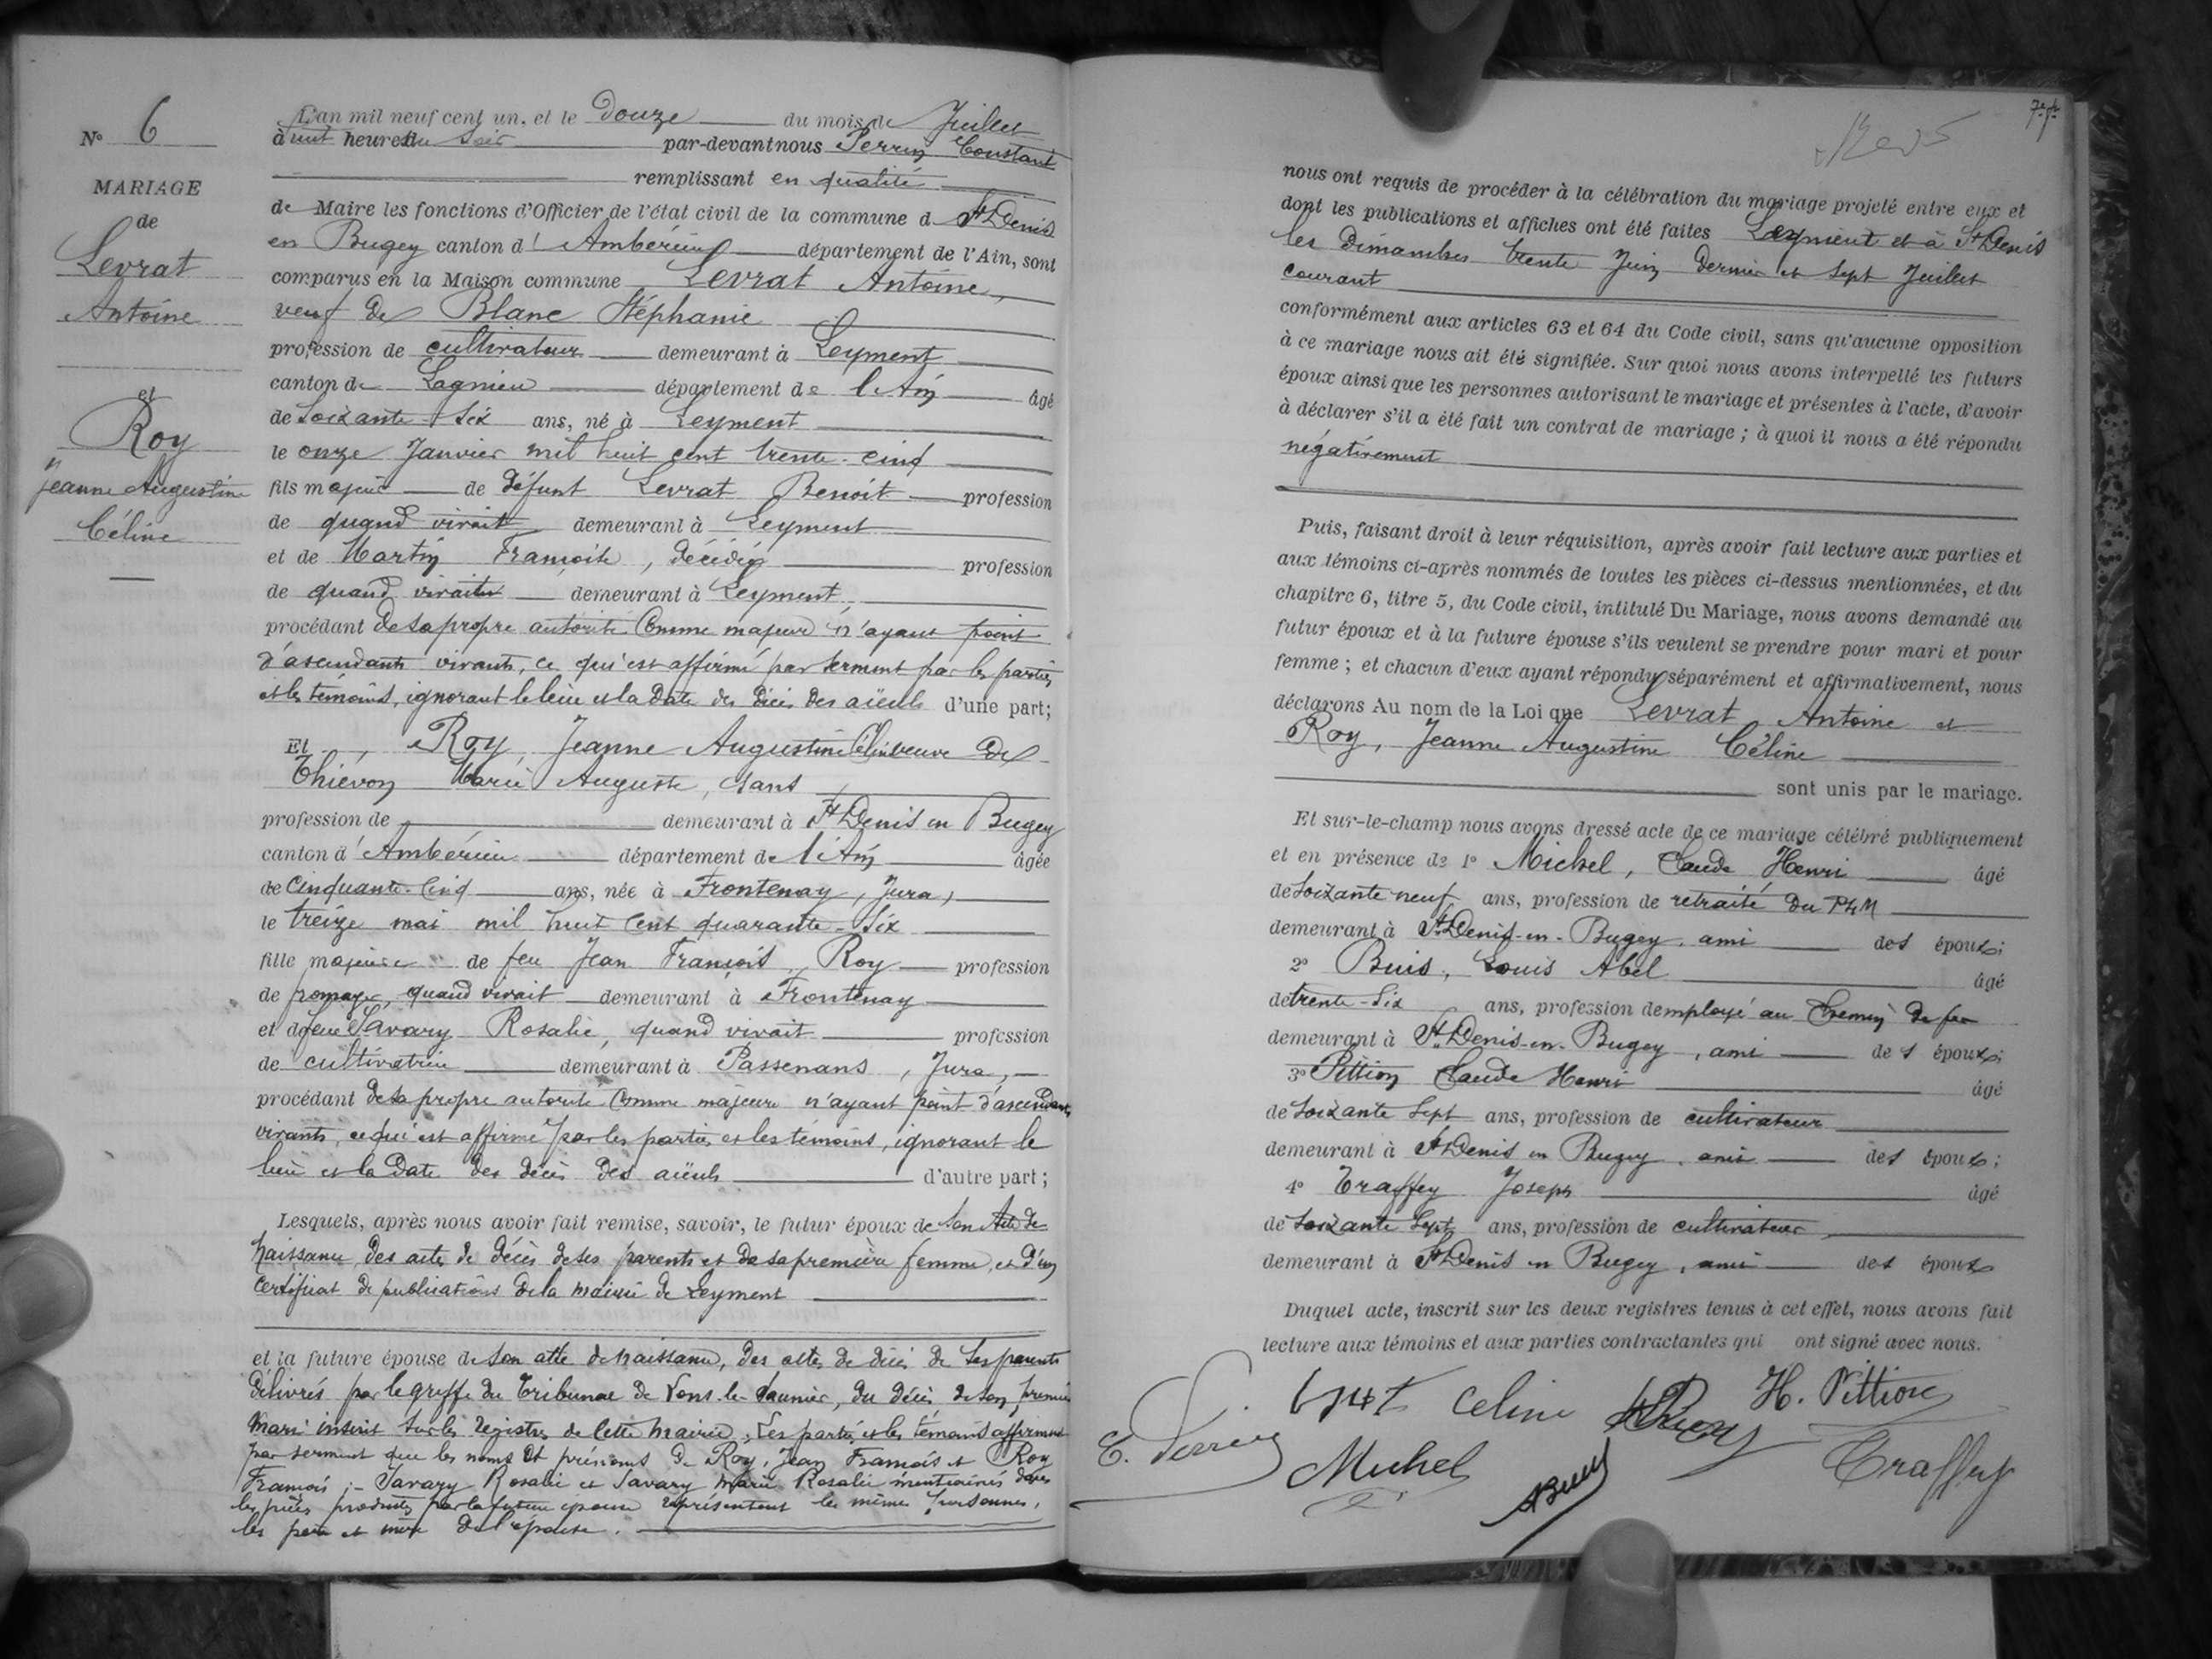 N° 6
MARIAGE
de
Levrat
Antoine
et
Roy
Jeanne Augustine
Céline
L'an mil neuf cent un, et le Douze du mois de Juillet
à huit heures du Soir par-devant nous Perrin Constant
remplissant en qualité
de Maire les fonctions d'Officier de l'état civil de la commune d St Denis
en Bugey canton d' Ambérieu département de l'Ain, sont
comparus en la Maison commune Levrat Antoine,
veuf de Blanc Stéphanie
profession de cultivateur demeurant à Leyment
canton de Lagnieu département de l'Ain âgé
de Soixante Six ans, né à Leyment
le onze Janvier mil huit cent trente-cinq
fils majeur de défunt Levrat Benoit profession
de quand vivait demeurant à Leyment
et de Martin Françoise, décédée profession
de quand vivait demeurant à Leyment,
procédant de sa propre autorité Comme majeur n'ayant point
d'ascendants vivants, ce qui est affirmé par serment par les parties
et les témoins, ignorant le lieu et la date des décès des aïeuls d'une part;
Et, Roy, Jeanne Augustine Céline veuve de
Thiévon Marie Auguste, sans
profession de demeurant à St Denis en Bugey
canton d' Ambérieu département de l'Ain âgée
de Cinquante-Cinq ans, née à Frontenay, Jura,
le treize mai mil huit cent quarante-Six
fille majeure de feu Jean François Roy profession
de fromager, quand vivait demeurant à Frontenay
et de feue Savary Rosalie, quand vivait profession
de cultivatrice demeurant à Passenans, Jura,
procédant de sa propre autorité Comme majeure n'ayant point d'ascendants
vivants, ce qui est affirmé par les parties et les témoins, ignorant le
lieu et la date des décès des aïeuls d'autre part;
Lesquels, après nous avoir fait remise, savoir, le futur époux de son Acte de
Naissance, des actes de décès de ses parents et de sa première femme, et d'un
certificat de publications de la mairie de Leyment
et la future épouse de son acte de Naissance, des actes de décès de ses parents
délivrés par le greffe du Tribunal de Lons-le-Saunier, du décès de son premier
Mari inscrit sur les registres de cette Mairie; Les parties et les témoins affirment
par serment que les noms et prénoms de Roy, Jean François et Roy
François; - Savary Rosalie et Savary Marie Rosalie mentionnés dans
les pièces produites par la future épouse représentent les même personnes,
les père et mère de l'épouse.
nous ont requis de procéder à la célébration du mariage projeté entre eux et
dont les publications et affiches ont été faites Leyment et à St Denis
les Dimanches trente Juin dernier et sept Juillet
courant
conformément aux articles 63 et 64 du Code civil, sans qu'aucune opposition
à ce mariage nous ait été signifiée. Sur quoi nous avons interpellé les futurs
époux ainsi que les personnes autorisant le mariage et présentes à l'acte, d'avoir
à déclarer s'il a été fait un contrat de mariage; à quoi il nous a été répondu
négativement
Puis, faisant droit à leur réquisition, après avoir fait lecture aux parties et
aux témoins ci-après nommés de toutes les pièces ci-dessus mentionnées, et du
chapitre 6, titre 5, du Code civil, intitulé Du Mariage, nous avons demandé au
futur époux et à la future épouse s'ils veulent se prendre pour mari et pour
femme; et chacun d'eux ayant répondu séparément et affirmativement, nous
déclarons Au nom de la Loi que Levrat Antoine et
Roy, Jeanne Augustine Céline
sont unis par le mariage.
Et sur-le-champ nous avons dressé acte de ce mariage célébré publiquement
et en présence de 1° Michel, Claude Henri âgé
de Soixante neuf ans, profession de retraité du PLM
demeurant à St Denis-en-Bugey, ami des époux;
2° Buis, Louis Abel âgé
de trente-Six ans, profession d'employé au Chemin de fer
demeurant à St Denis-en-Bugey, ami des époux;
3° Pittion Claude Henri âgé
de Soixante Sept ans, profession de cultivateur
demeurant à St Denis en Bugey, ami des époux;
4° Traffey Joseph âgé
de Soixante Sept ans, profession de cultivateur
demeurant à St Denis en Bugey, ami des époux
Duquel acte, inscrit sur les deux registres tenus à cet effet, nous avons fait
lecture aux témoins et aux parties contractantes qui ont signé avec nous.
Celine Roy H. Pittion
C. Perrin Michel ABuis Traffey